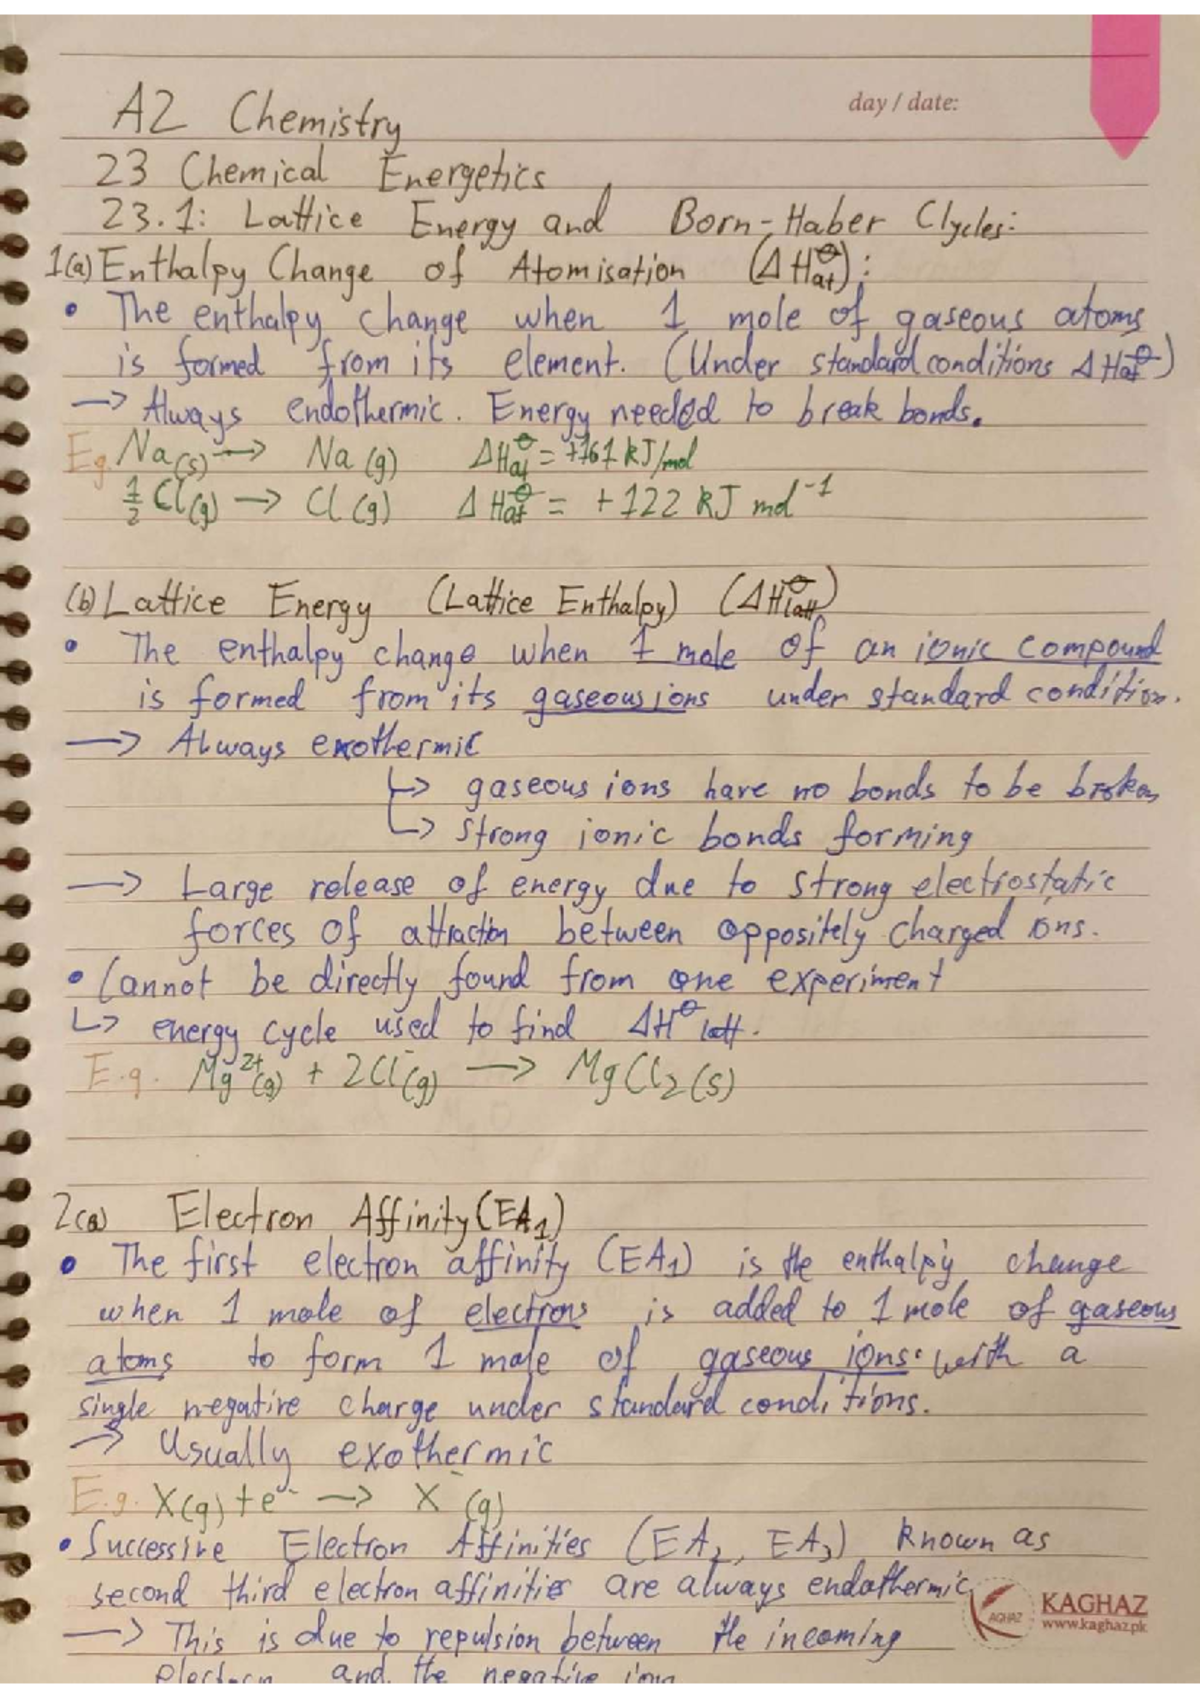 day / date:
A2 Chemistry
23 Chemical Energetics
23.1: Lattice Energy and Born-Haber Clycles:-
1(a) Enthalpy Change of Atomisation (ΔH⦵at):
• The enthalpy change when 1 mole of gaseous atoms
is formed from its element. (Under standard conditions ΔH⦵at)
→ Always endothermic. Energy needed to break bonds.
Eg. Na(s) → Na(g) ΔH⦵at = +161 kJ/mol
½ Cl(g) → Cl(g) ΔH⦵at = +122 kJ mol⁻¹
(b) Lattice Energy (Lattice Enthalpy) (ΔH⦵latt)
• The enthalpy change when 1 mole of an ionic compound
is formed from its gaseous ions under standard condition.
→ Always exothermic
↳ gaseous ions have no bonds to be broken
↳ strong ionic bonds forming
→ Large release of energy due to strong electrostatic
forces of attraction between oppositely charged ions.
• Cannot be directly found from one experiment
↳ energy cycle used to find ΔH⦵latt.
E.g. Mg²⁺(g) + 2Cl⁻(g) → MgCl₂(s)
2(a) Electron Affinity (EA₁)
• The first electron affinity (EA₁) is the enthalpy change
when 1 mole of electrons is added to 1 mole of gaseous
atoms to form 1 mole of gaseous ions with a
single negative charge under standard conditions.
→ Usually exothermic
E.g. X(g) + e⁻ → X⁻(g)
• Successive Electron Affinities (EA₂, EA₃) known as
second third electron affinities are always endothermic
→ This is due to repulsion between the incoming
electron and the negative ion
AGHAZ KAGHAZ
www.kaghaz.pk